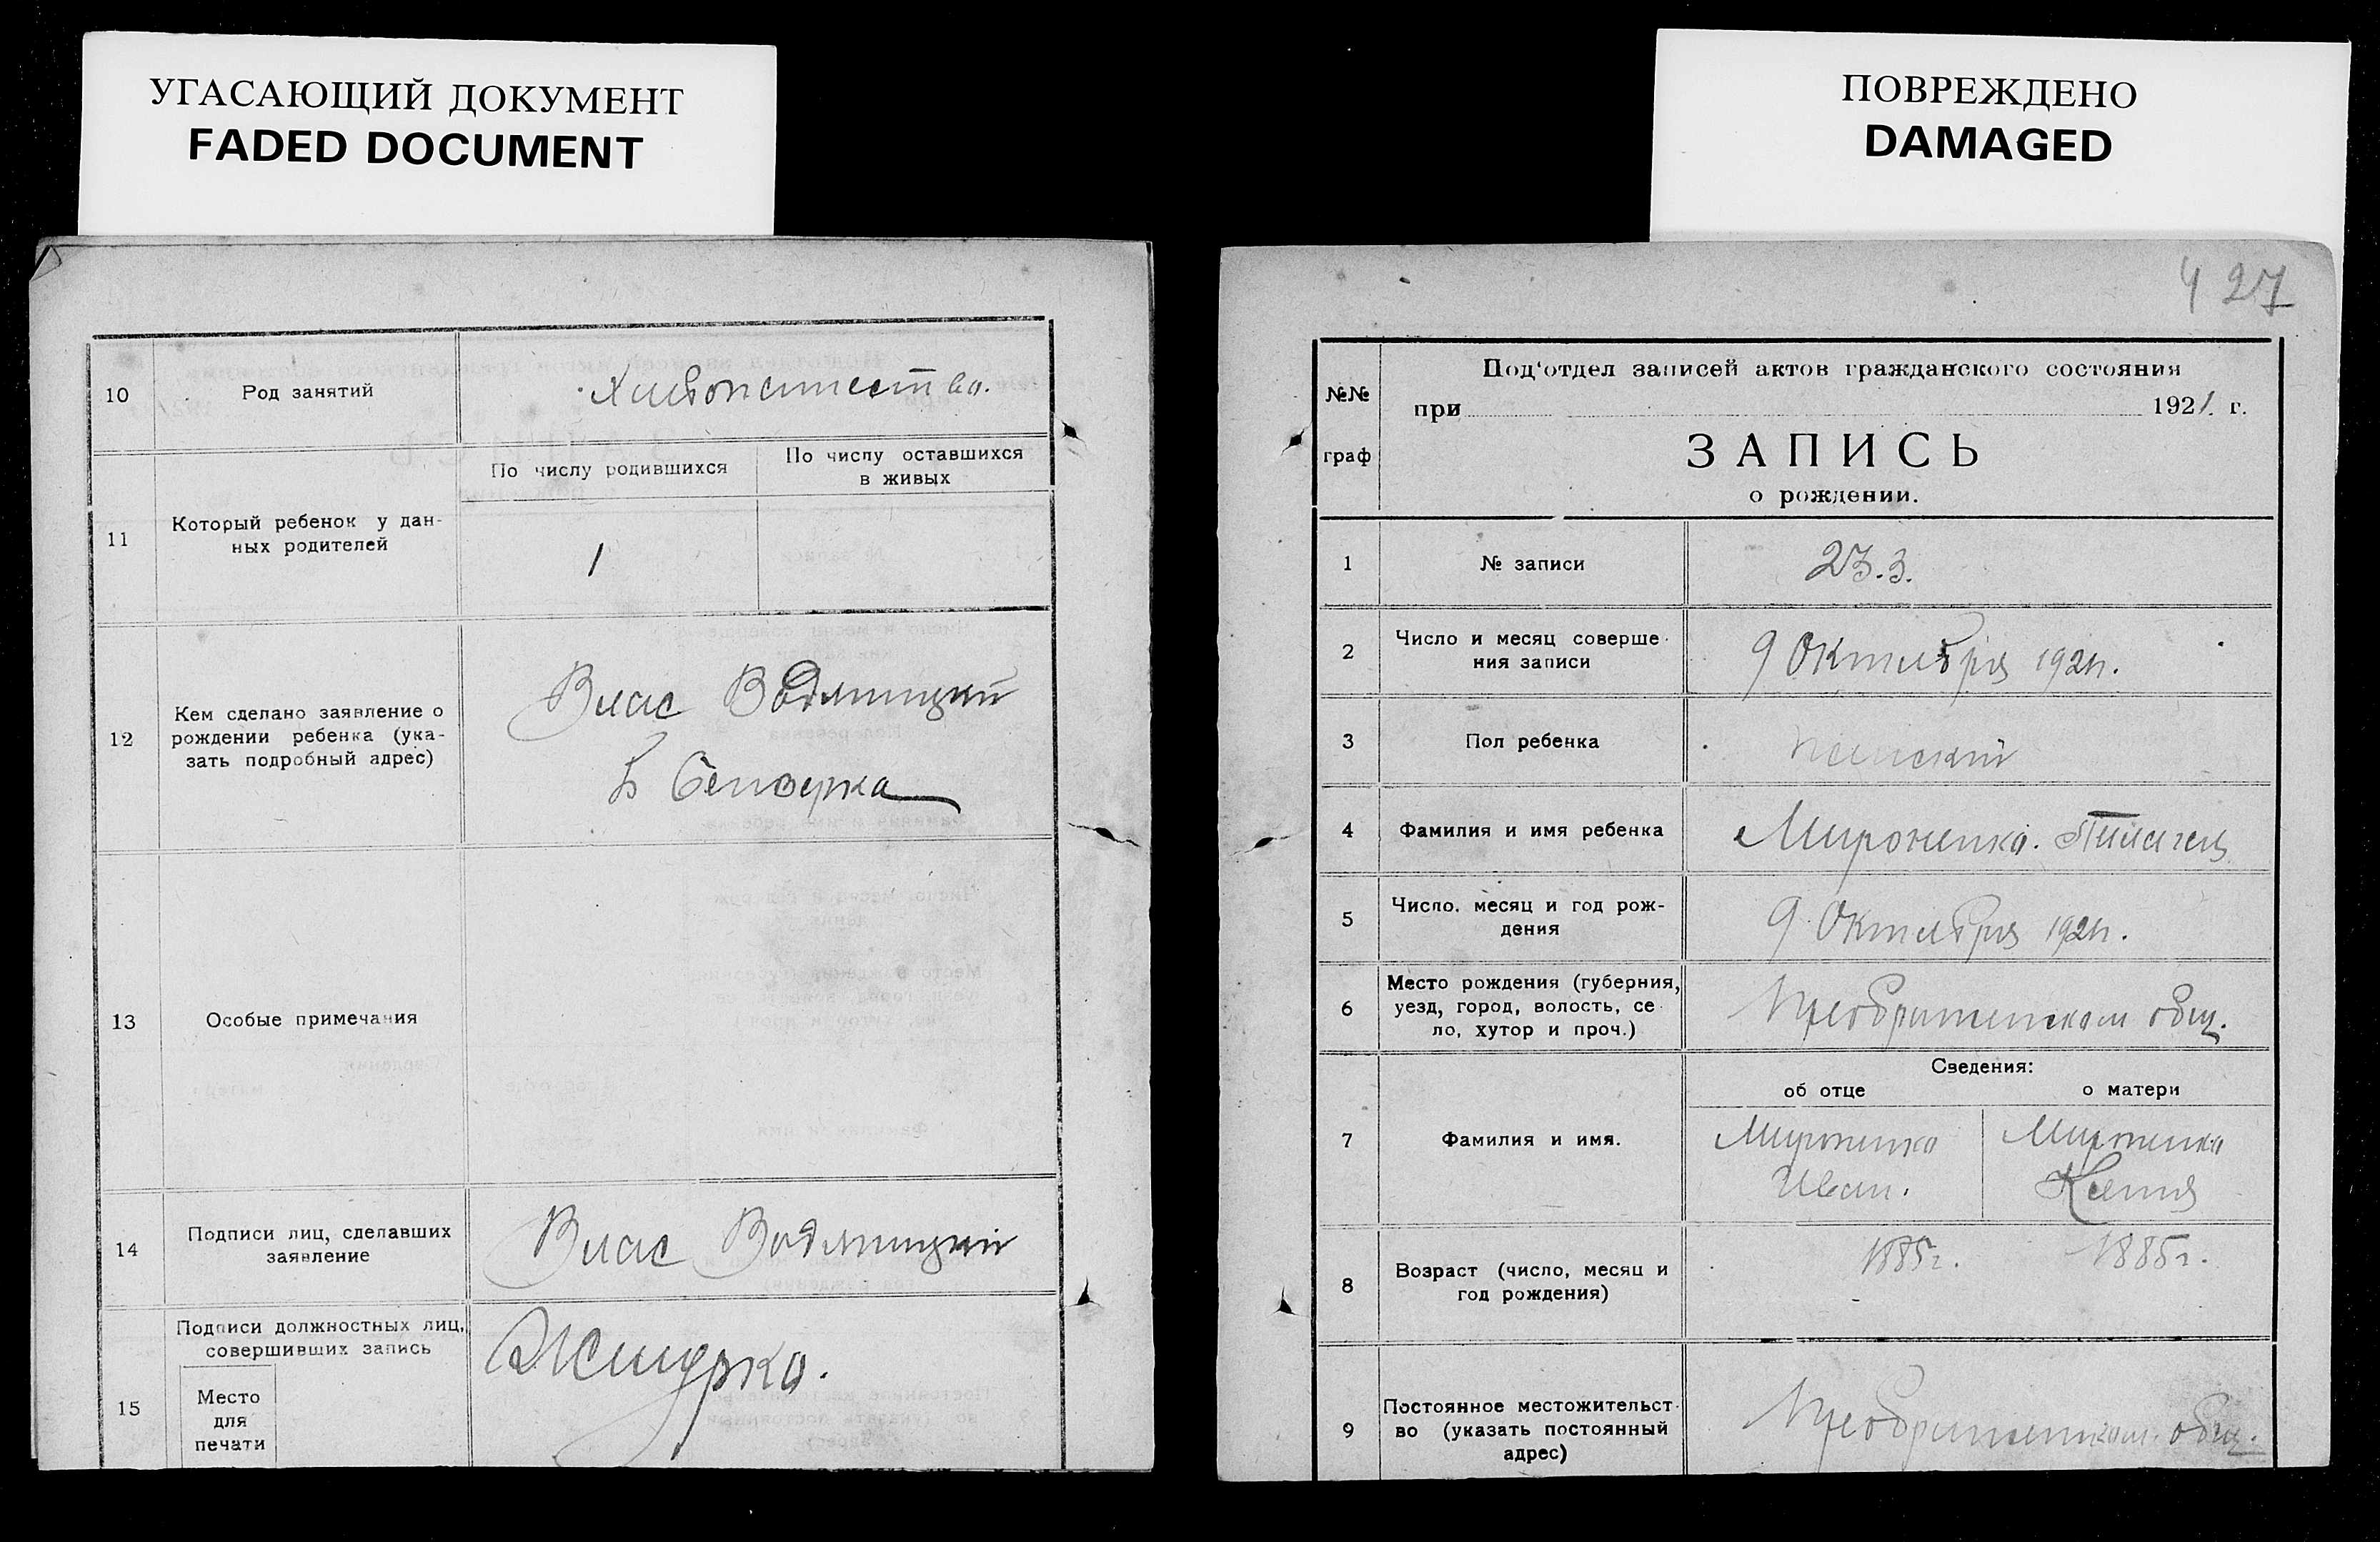 УГАСАЮЩИЙ ДОКУМЕНТ
FADED DOCUMENT
10
Род занятий
Хлебопашество.
11
Который ребенок у дан-
ных родителей
По числу родившихся
По числу оставшихся
в живых
1
12
Кем сделано заявление о
рождении ребенка (ука-
зать подробный адрес)
Влас Водяницкий
Б
13
Особые примечания
14
Подписи лиц, сделавших
заявление
Влас Водяницкий
15
Подписи должностных лиц,
совершивших запись
Место
для
печати
ПОВРЕЖДЕНО
DAMAGED
427
№№
граф
Под'отдел записей актов гражданского состояния
при 1921 г.
ЗАПИСЬ
о рождении.
1
№ записи
23.3.
2
Число и месяц соверше-
ния записи
9 Октября 1921г.
3
Пол ребенка
женский
4
Фамилия и имя ребенка
Мироненко.
5
Число, месяц и год рож-
дения
9 Октября 1921г.
6
Место рождения (губерния,
уезд, город, волость, се-
ло, хутор и проч.)
общ.
7
Фамилия и имя.
Сведения:
об отце
о матери
Мироненко
Иван.
Мироненко
Ксения
8
Возраст (число, месяц и
год рождения)
1885г.
1885г.
9
Постоянное местожительст-
во (указать постоянный
адрес)
общ.